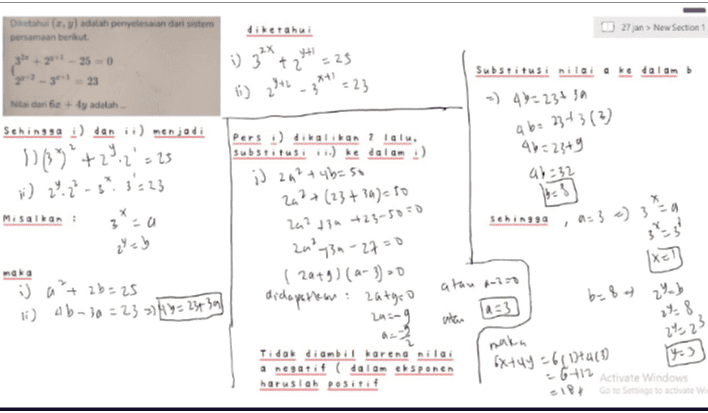 Diketahui (x, y) adalah penyelesaian dari sistem
persamaan berikut.
3^{2x} + 2^{y+1} - 25 = 0
2^{y+2} - 3^{x+1} = 23
Nilai dari 6x + 4y adalah ...
Sehingga i) dan ii) menjadi
i) (3^x)^2 + 2^y . 2^1 = 25
ii) 2^y . 2^2 - 3^x . 3^1 = 23
Misalkan :
3^x = a
2^y = b
maka
i) a^2 + 2b = 25
ii) 4b - 3a = 23 => 4b = 23 + 3a
diketahui
i) 3^{2x} + 2^{y+1} = 25
ii) 2^{y+2} - 3^{x+1} = 23
Pers i) dikalikan 2 lalu,
substitusi ii.) ke dalam i)
i) 2a^2 + 4b = 50
2a^2 + (23 + 3a) = 50
2a^2 + 3a + 23 - 50 = 0
2a^2 + 3a - 27 = 0
(2a + 9)(a - 3) = 0
didapatkan : 2a + 9 = 0 atau a - 3 = 0
2a = -9 atau a = 3
a = -9/2
Tidak diambil karena nilai
a negatif ( dalam eksponen
haruslah positif
27 jan > New Section 1
Substitusi nilai a ke dalam b
=> 4b = 23 + 3a
4b = 23 + 3(3)
4b = 23 + 9
4b = 32
b = 8
sehingga , a = 3 => 3^x = a
3^x = 3^1
x = 1
b = 8 => 2^y = b
2^y = 8
2^y = 2^3
y = 3
maka
6x + 4y = 6(1) + 4(3)
= 6 + 12
= 18
Activate Windows
Go to Settings to activate Wi